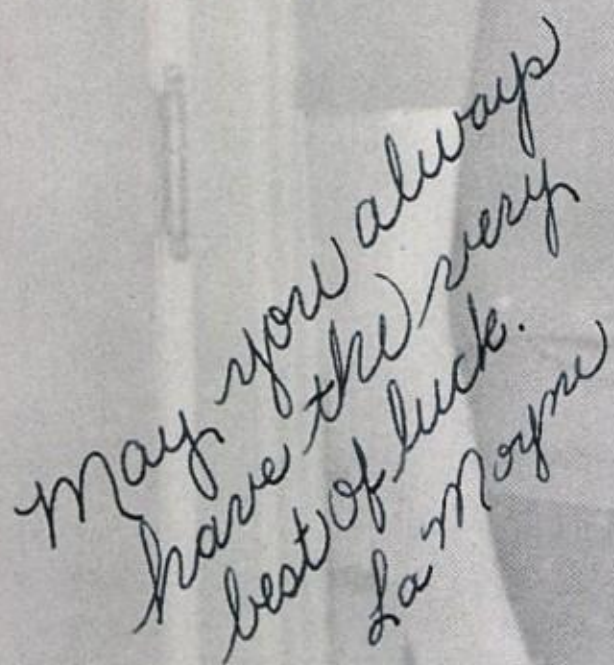 May you always
have the very
best of luck.
La Moyne